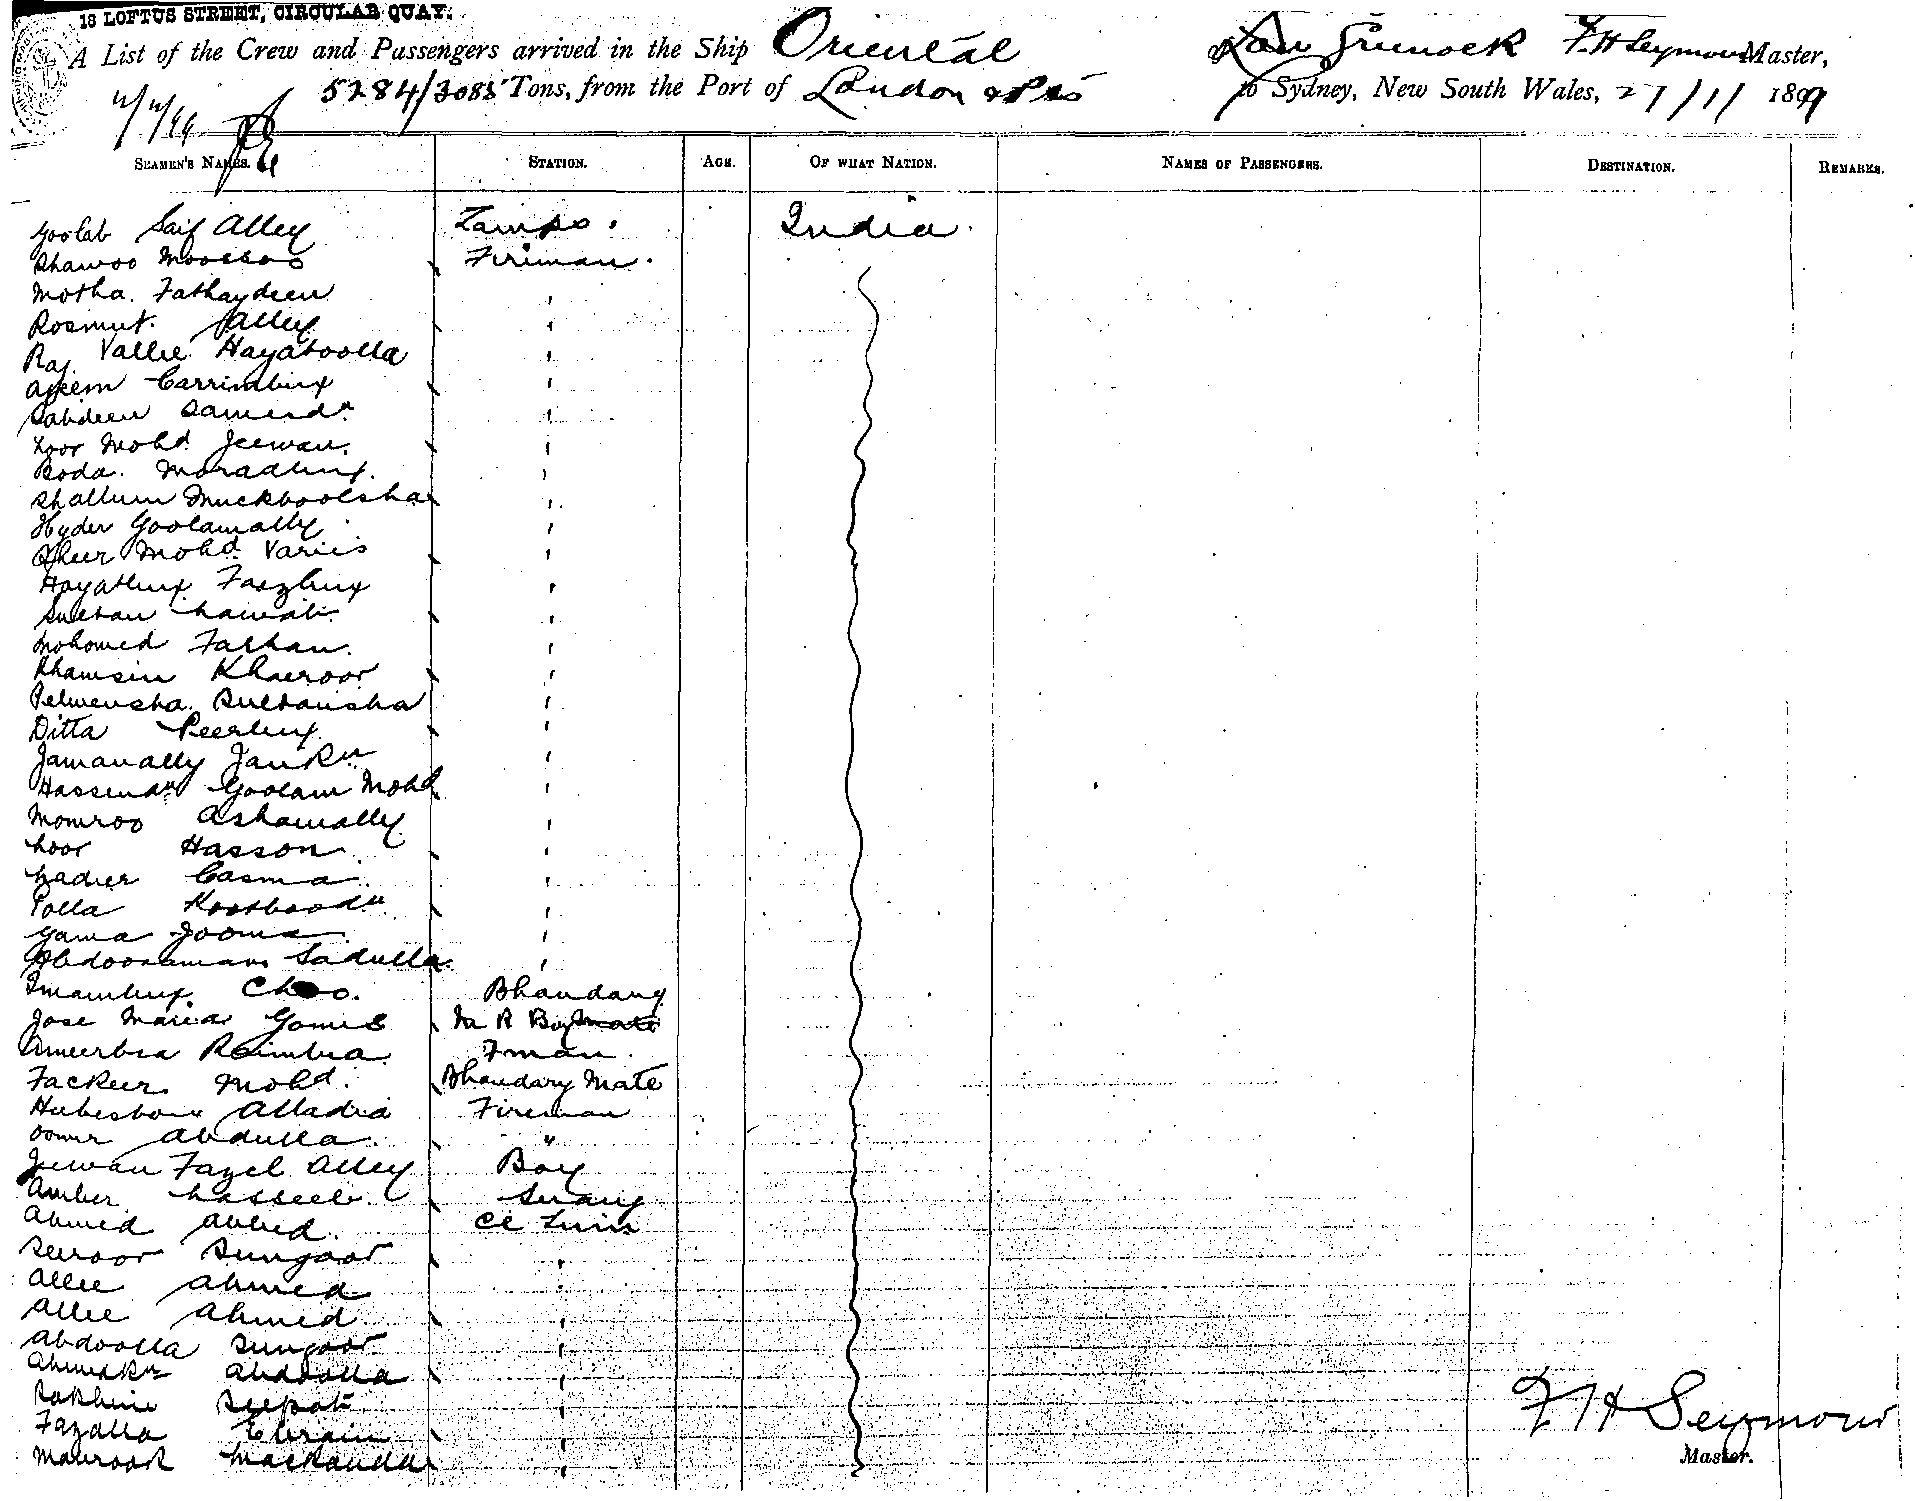 18 LOFTUS STREET, CIRCULAR QUAY.
A List of the Crew and Passengers arrived in the Ship Oriental of Greenock F. H Seymour Master,
5284/3085 Tons, from the Port of London & Pts to Sydney, New South Wales, 27/1/1899
SEAMEN'S NAMES. STATION. AGE. OF WHAT NATION. NAMES OF PASSENGERS. DESTINATION. REMARKS.
Goolab Saif Alley Lamps. India.
Moossoo Fireman.
Motha. Fathaydeen "
Rosmut. Alley "
Raj. Vallee Hayatoolla "
Azeem Carrimbux "
Sabdeen "
Noor Mohd. Jeewan. "
Boda. Moradbux. "
Muckboolsha "
Hyder Goolamally "
Sheer Mohd Varies "
Hayatbux Faezbux "
Sultan "
Mohomed "
Khamsin Khaeroor "
Sultansha "
Ditta Peerbux. "
Jamanally "
Goolam Mohd "
Momroo Ashamally. "
Noor Hasson "
Nadier Casma "
"
Gama Jooma "
Sadulla "
Imambux. Choo. Bhandary
Jose Maria Gomes M R Boy Mate
Ameerbia Raimbia Fman.
Fackeer Mohd. Bhandary Mate
Alladia Fireman
Oomer Abdulla. "
Jeewan Fazel Alley Boy
Amber Nasseeb Serang
Ahmed Abbed.
Seeroor Sungoor "
Allee Ahmed
Allee Ahmed "
Abdoolla Sungoor
Abdoolla "
Fazalla Ebraim "
Mabrook Mackauda "
F H Seymour
Master.